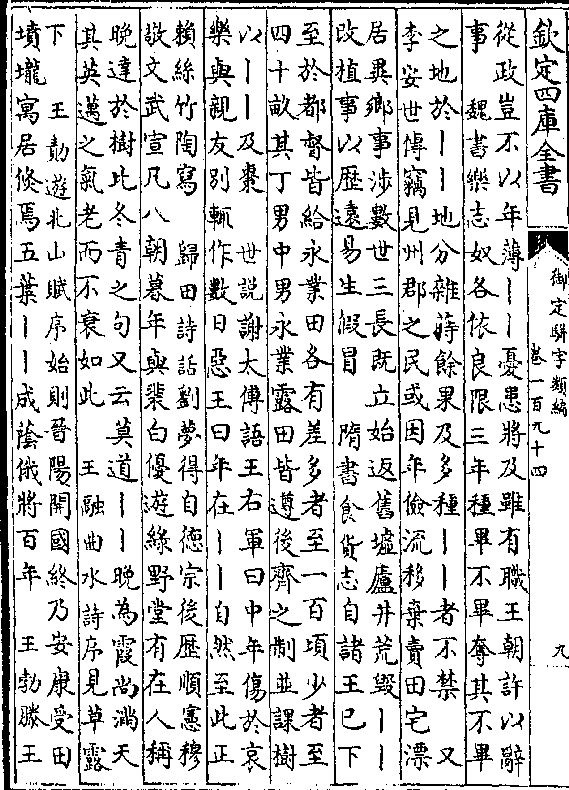 欽定四庫全書
御定駢字類編
卷一百九十四
九
從政豈不以年薄丨丨憂患將及雖有職王朝許以辭
事　魏書樂志奴各依良限三年種畢不畢奪其不畢
之地於丨丨地分雜蒔餘果及多種丨丨者不禁　又
李安世傳竊見州郡之民或因年儉流移棄賣田宅漂
居異鄉事涉數世三長既立始返舊墟廬井荒毀丨丨
改植事以歷遠易生假冒　隋書食貨志自諸王已下
至於都督皆給永業田各有差多者至一百頃少者至
四十畝其丁男中男永業露田皆遵後齊之制並課樹
以丨丨及棗　世説謝太傅語王右軍曰中年傷於哀
樂與親友别輒作數日惡王曰年在丨丨自然至此正
賴絲竹陶寫　歸田詩話劉夢得自德宗後歷順憲穆
敬文武宣凡八朝暮年與裴白優遊綠野堂有在人稱
晚達於樹比冬青之句又云莫道丨丨晚為霞尚滿天
其英邁之氣老而不衰如此　王融曲水詩序見草露
下　王勣遊北山賦序始則晉陽開國終乃安康受田
墳壠寓居倐焉五葉丨丨成蔭俄將百年　王勃滕王